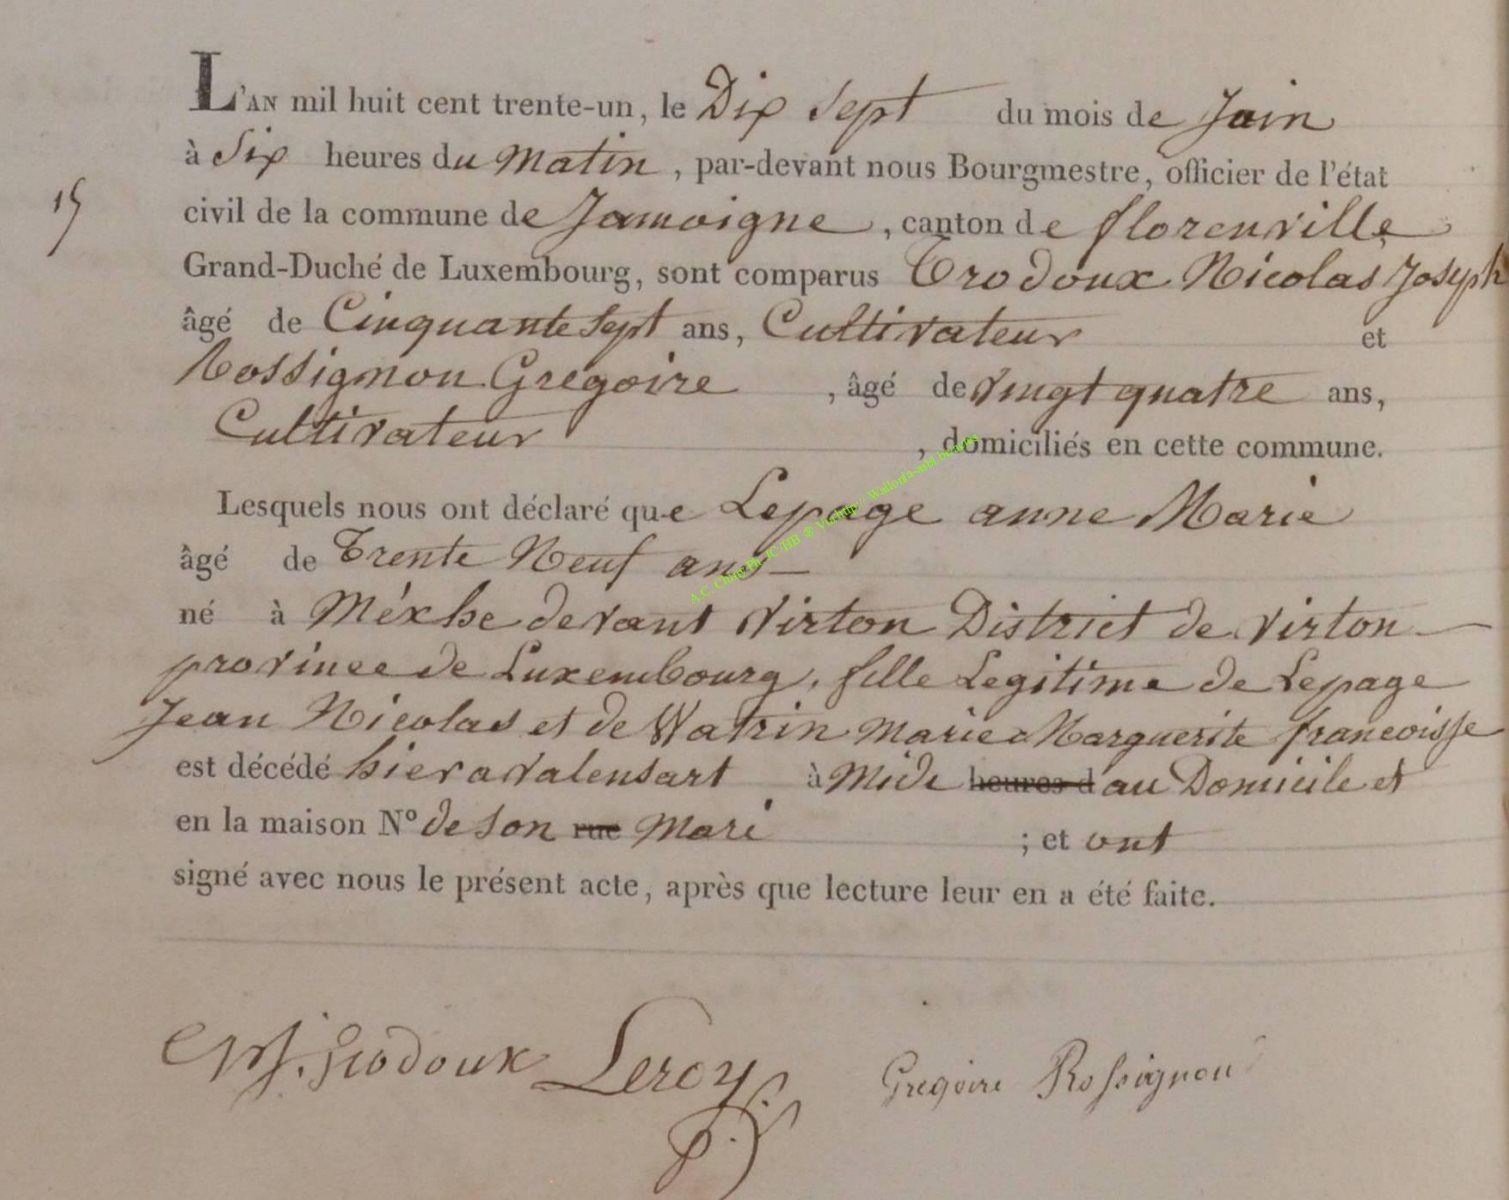 15
L'AN mil huit cent trente-un, le Dix sept du mois de Juin
à Six heures du Matin, par-devant nous Bourgmestre, officier de l'état
civil de la commune de Jamoigne, canton de florenville
Grand-Duché de Luxembourg, sont comparus Trodoux Nicolas Joseph
âgé de Cinquante Sept ans, Cultivateur et
Rossignon Gregoire, âgé de vingt quatre ans,
Cultivateur, domiciliés en cette commune.
Lesquels nous ont déclaré que Lepage anne Marie
âgé de Trente Neuf ans
né à Méxhe devant Virton District de Virton
province de Luxembourg, fille Legitime de Lepage
Jean Nicolas et de Watrin Marie Marguerite francoisse
est décédé hier a valensart à Midi heures d au Domicile et
en la maison N° de son rue Mari ; et ont
signé avec nous le présent acte, après que lecture leur en a été faite.
NJ. Trodoux Leroy Gregoire Rossignon